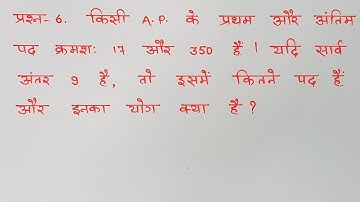 प्रश्न-6. किसी A.P. के प्रथम और अंतिम
पद क्रमशः 17 और 350 हैं । यदि सार्व
अंतर 9 है, तो इसमें कितने पद हैं
और इनका योग क्या है ?